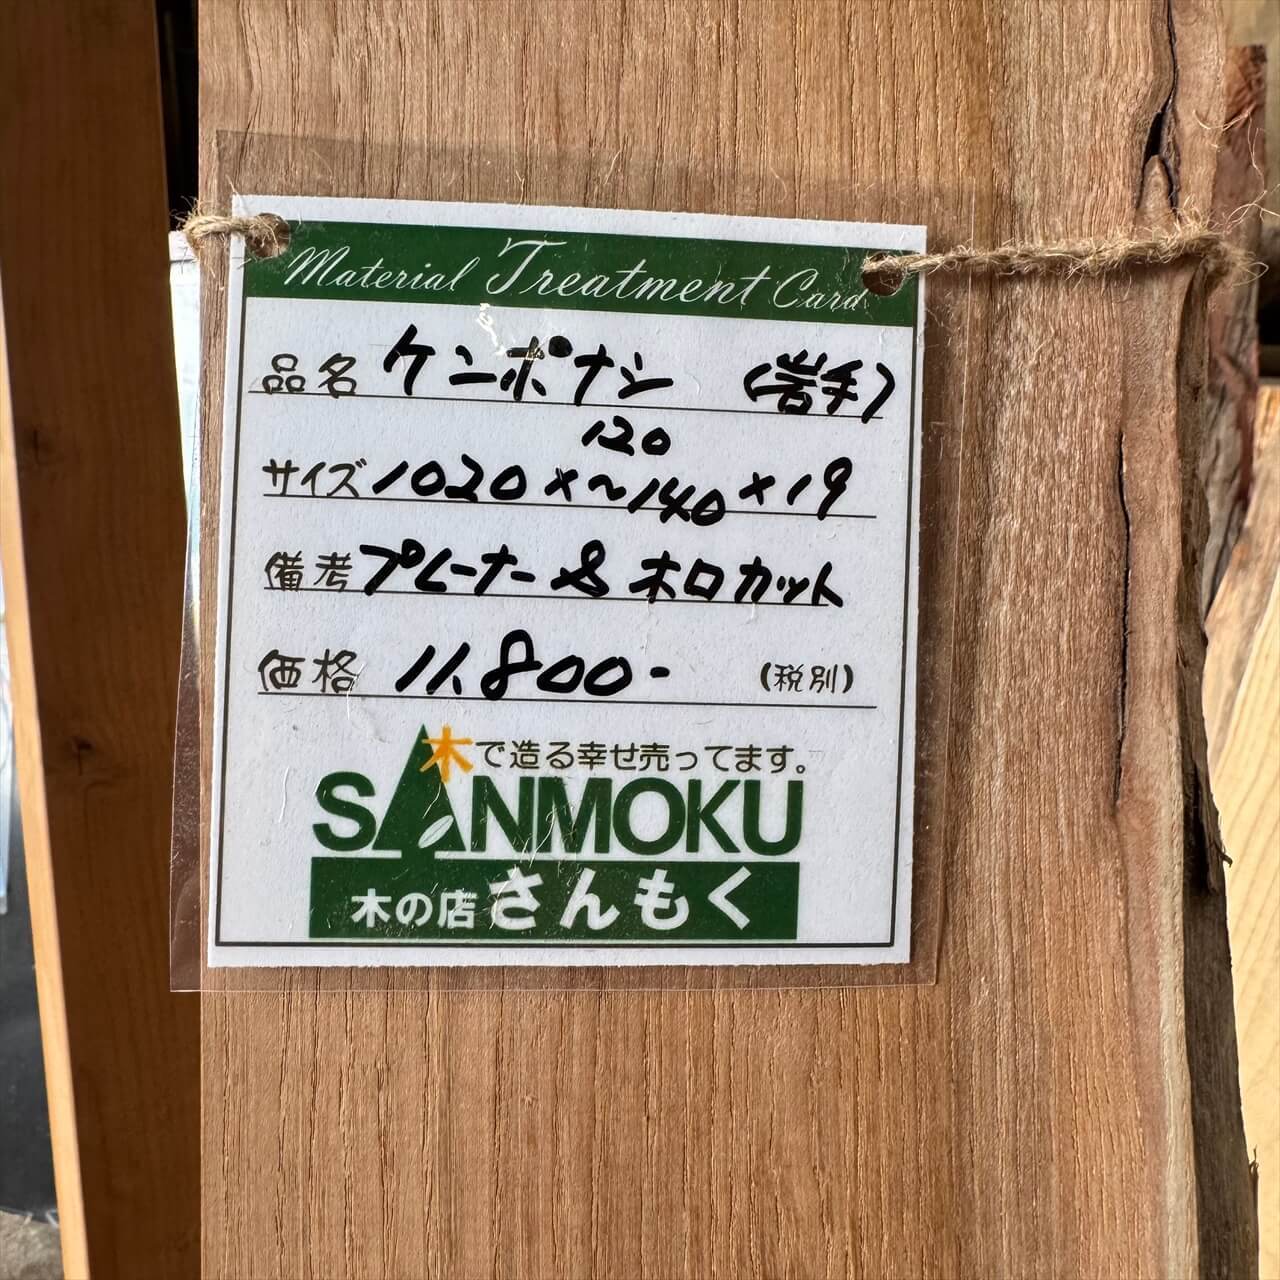 Material Treatment Card
品名 ケンポナシ (岩手)
120
サイズ 1020×~140×19
備考 プレーナー & 木口カット
価格 11,800- (税別)
木で造る幸せ売ってます。
SANMOKU
木の店さんもく